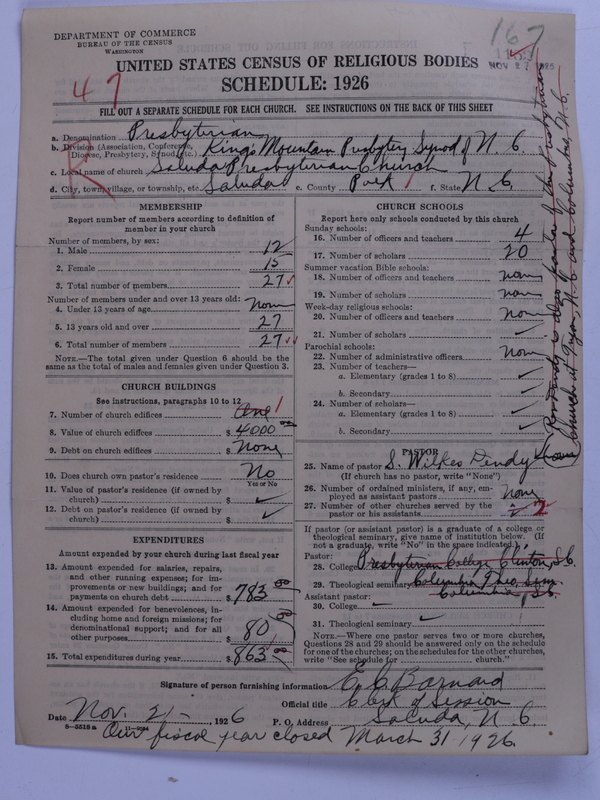 DEPARTMENT OF COMMERCE
BUREAU OF THE CENSUS
WASHINGTON
167
NOV 27 1926
47
UNITED STATES CENSUS OF RELIGIOUS BODIES
SCHEDULE: 1926
FILL OUT A SEPARATE SCHEDULE FOR EACH CHURCH. SEE INSTRUCTIONS ON THE BACK OF THIS SHEET
a. Denomination Presbyterian
b. Division (Association, Conference, Diocese, Presbytery, Synod, etc.) King's Mountain Presbytery Synod of N. C.
c. Local name of church Saluda Presbyterian Church
d. City, town, village, or township, etc. Saluda e. County Polk f. State N. C.
MEMBERSHIP
Report number of members according to definition of
member in your church
Number of members, by sex:
1. Male 12
2. Female 15
3. Total number of members 27
Number of members under and over 13 years old:
4. Under 13 years of age none
5. 13 years old and over 27
6. Total number of members 27
NOTE.—The total given under Question 6 should be the
same as the total of males and females given under Question 3.
CHURCH BUILDINGS
See instructions, paragraphs 10 to 12
7. Number of church edifices One 1
8. Value of church edifices $ 4000 00
9. Debt on church edifices $ None
10. Does church own pastor's residence No
Yes or No
11. Value of pastor's residence (if owned by
church) $ ✓
12. Debt on pastor's residence (if owned by
church) $ ✓
EXPENDITURES
Amount expended by your church during last fiscal year
13. Amount expended for salaries, repairs,
and other running expenses; for im-
provements or new buildings; and for
payments on church debt $ 783 00
14. Amount expended for benevolences, in-
cluding home and foreign missions; for
denominational support; and for all
other purposes $ 80 00
15. Total expenditures during year $ 863 00
CHURCH SCHOOLS
Report here only schools conducted by this church
Sunday schools:
16. Number of officers and teachers 4
17. Number of scholars 20
Summer vacation Bible schools:
18. Number of officers and teachers none
19. Number of scholars none
Week-day religious schools:
20. Number of officers and teachers none
21. Number of scholars ✓
Parochial schools:
22. Number of administrative officers none
23. Number of teachers—
a. Elementary (grades 1 to 8) ✓
b. Secondary ✓
24. Number of scholars—
a. Elementary (grades 1 to 8) ✓
b. Secondary ✓
PASTOR
25. Name of pastor S. Wilkes Dendy
(If church has no pastor, write "None")
26. Number of ordained ministers, if any, em-
ployed as assistant pastors none
27. Number of other churches served by the
pastor or his assistants 2
If pastor (or assistant pastor) is a graduate of a college or
theological seminary, give name of institution below. (If
not a graduate, write "No" in the space indicated.)
Pastor:
28. College Presbyterian College Clinton, S.C.
29. Theological seminary Columbia Theo. Sem.
Columbia, S.C.
Assistant pastor:
30. College ✓
31. Theological seminary ✓
NOTE.—Where one pastor serves two or more churches,
Questions 28 and 29 should be answered only on the schedule
for one of the churches; on the schedules for the other churches,
write "See schedule for church."
Rev. Dendy is also pastor of the Presbyterian
Church at Tryon, N.C. and Columbus, N.C.
Signature of person furnishing information E. C. Barnard
Official title Clerk of Session
Date Nov. 21—, 1926 P. O. Address Saluda, N. C.
8—5518 a
Our fiscal year closed March 31 1926.